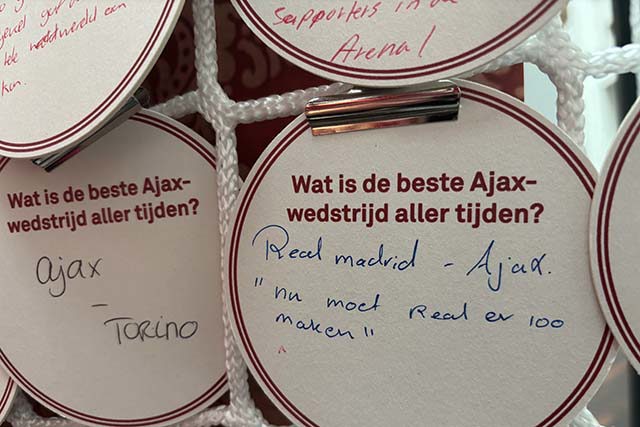 tele
kon.
Supporters in de
Arena!
Wat is de beste Ajax-
wedstrijd aller tijden?
Ajax
-
TORINO
Wat is de beste Ajax-
wedstrijd aller tijden?
Real madrid - Ajax.
"nu moet Real er 100
maken"